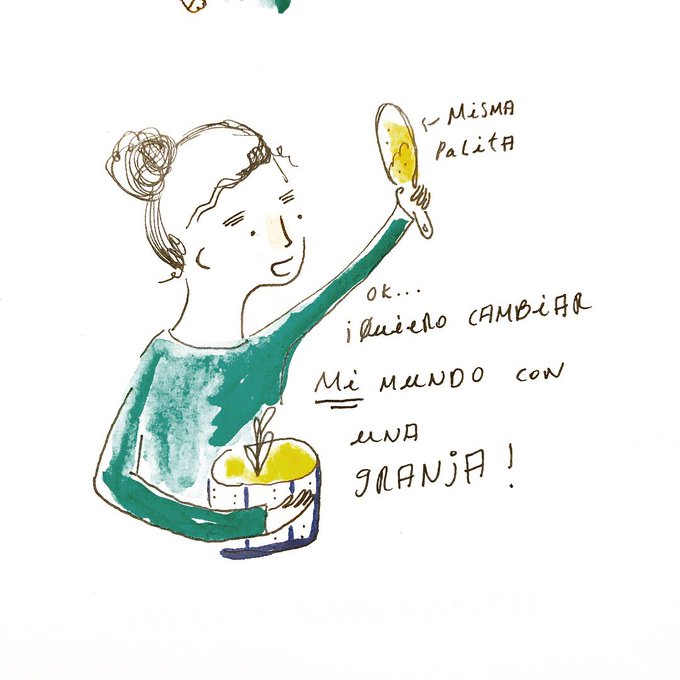 ← MISMA
PALITA
OK...
¡QUIERO CAMBIAR
Mi MUNDO CON
UNA
GRANJA!